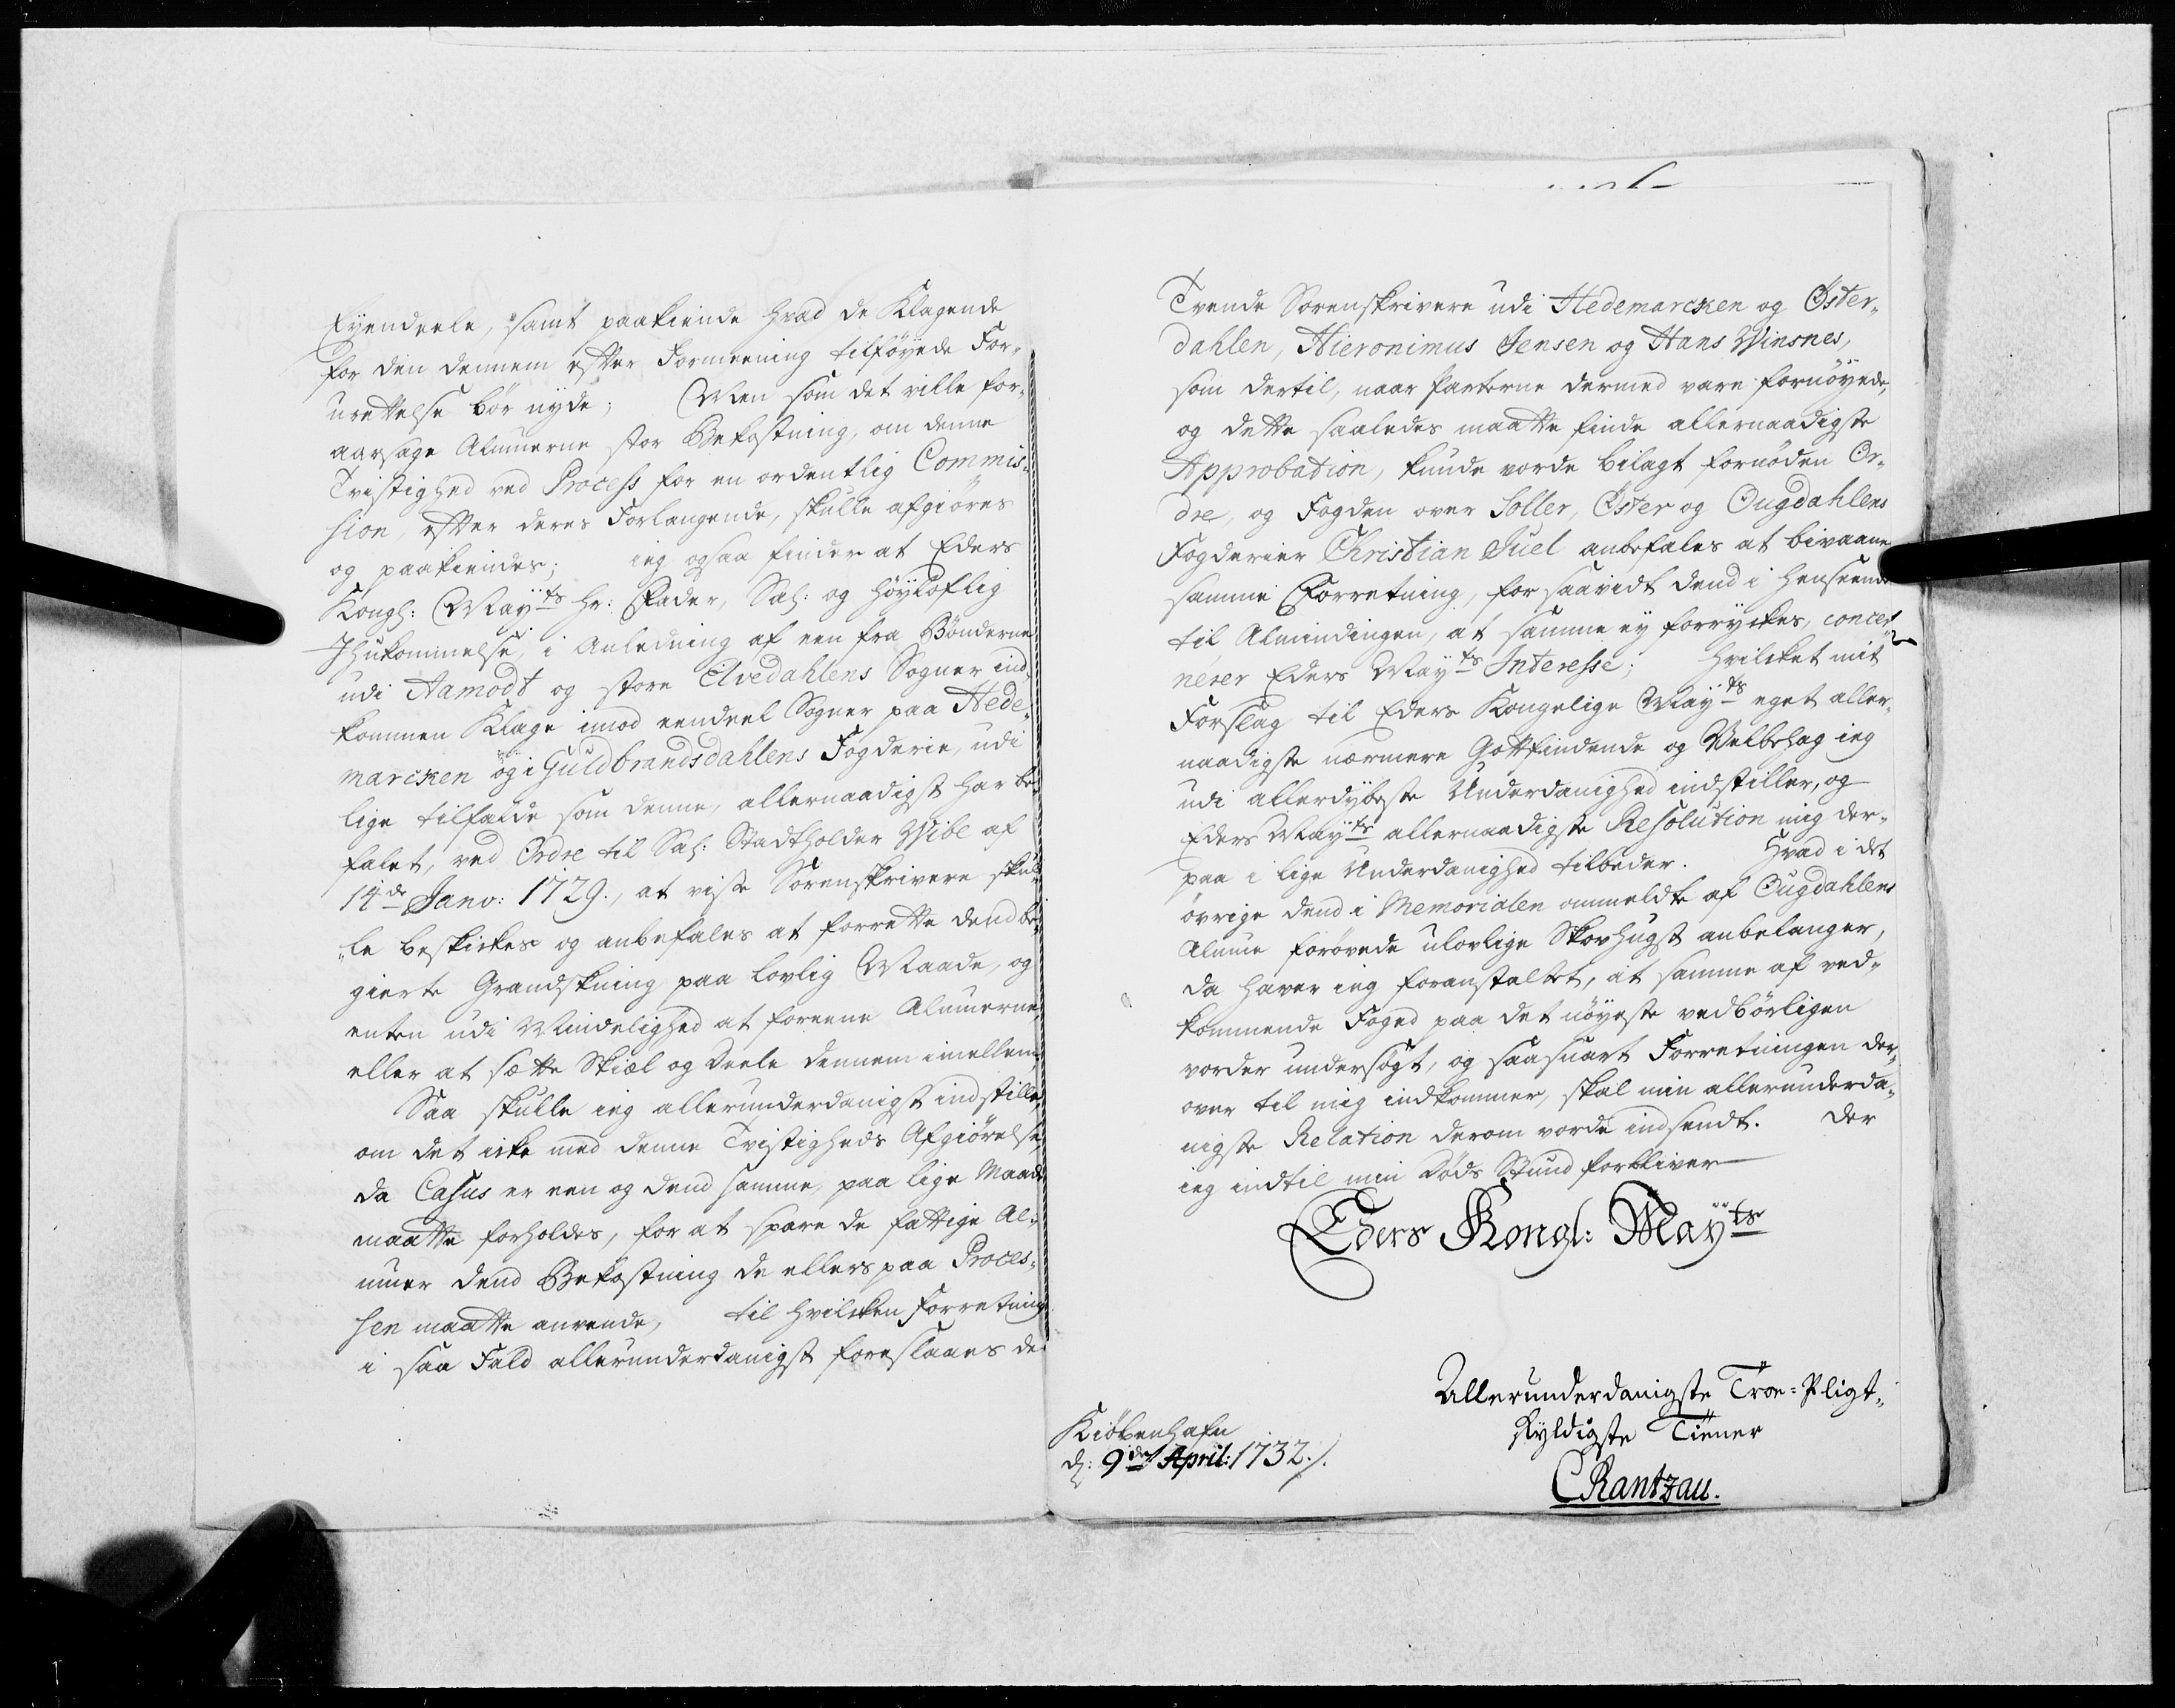 Eyendeele, samt paakiende hvad de Klagende
for den dennem efter Formeening tilføyede For¬
urettelse bør nyde; Men som det ville for¬
aarsage Almuerne stor Bekostning, om denne
Tvistighed ved Process for en ordentlig Commis¬
sion, efter deres Forlangende, skulle afgiøres
og paakiendes; ieg ogsaa finder at Eders
Kongl: Mayts Hr: Fader, Sal: og høyloflig
Ihukommelse, i Anledning af een fra Bønderne
udi Aamodt og store Elvedahlens Sogner ind¬
kommen Klage imod eendeel Sogner paa Hede¬
marcken og i Guldbrandsdahlens Fogderie, udi
lige tilfælde som denne, allernaadigst har be¬
falet, ved Ordre til Sal: Stadtholder Wibe af
14de Janv: 1729., at visse Sorenskrivere skul¬
le beskikkes og anbefales at forrette dend be¬
gierte Grandskning paa lovlig Maade, og
enten udi Mindelighed at foreene Almuerne,
eller at sætte Skiæl og Deele dennem imellem;
Saa skulle ieg allerunderdanigst indstille,
om det icke med denne Tvistigheds Afgiørelse,
da Casus er een og dend samme, paa lige Maade
maatte forholdes, for at spare de fattige Al¬
muer dend Bekostning de ellers paa Proces¬
sen maatte anvende, til hvilcken Forretning
i saa Fald allerunderdanigst foreslaaes de
Tvende Sorenskrivere udi Hedemarcken og Øster¬
dahlen, Hieronimus Jensen og Hans Winsnes,
som dertil, naar Parterne dermed vare fornøyede,
og dette saaledes maatte finde allernaadigste
Approbation, kunde vorde bilagt fornøden Or¬
dre, og Fogden over Soller, Øster og Ougdahlens
Fogderier Christian Juel anbefales at bivaane
samme Forretning, forsaavidt dend i Henseende
til Almindingen, at samme ey forryckes, concer¬
nerer Eders Mayts Interesse; Hvilcket mit
Forslag til Eders Kongelige Mayts eget aller¬
naadigste nærmere Gotfindende og Velbehag ieg
udi allerdybeste Underdanighed indstiller, og
Eders Mayts allernaadigste Resolution mig der¬
paa i lige Underdanighed tilbeder. Hvad i det
øvrige dend i Memorialen ommeldte af Ougdahlens
Almue forøvede ulovlige Skovhugst anbelanger,
da haver ieg foranstaltet, at samme af ved¬
kommende Foged paa det nøyeste vedbørligen
vorder undersøgt, og saasnart Forretningen der¬
over til mig indkommer, skal min allerunderda¬
nigste Relation derom vorde indsendt. Der
ieg indtil min Døds Stund forbliver
Eders Kongl: Mayts
Allerunderdanigste Troe-Pligt¬
skyldigste Tiener
CRantzau.
Kiøbenhafn
d: 9de April: 1732./.